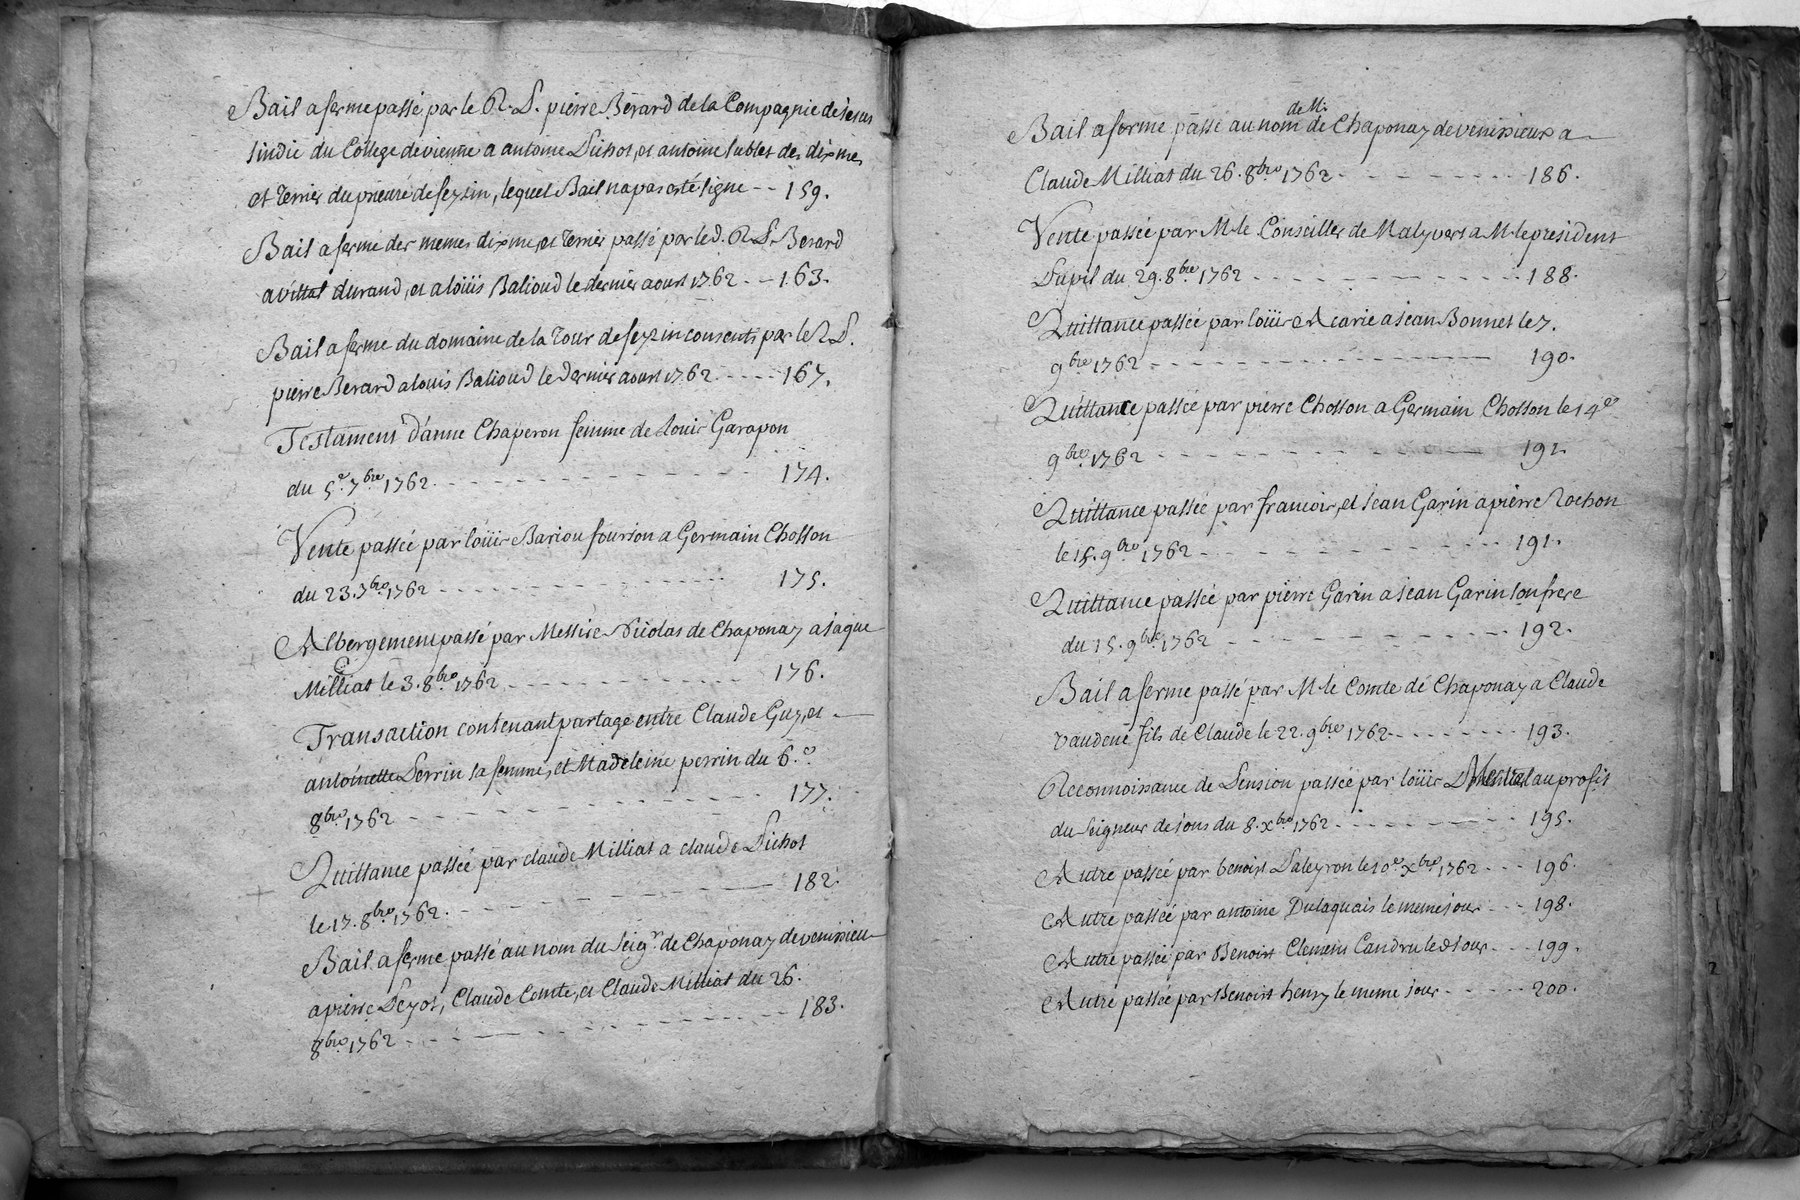 Bail a ferme passé par le R. P. pierre Berard de la Compagnie de iesus
sindic du College de vienne a antoine Pichot, et antoine sublet des dixmes,
et terrier du prieuré de seyzin, lequel Bail na pas esté signe -- 159.
Bail a ferme des memes dixme, et terrier passé par led. R. P. Berard
a vittal durand, et a loüis Balioud le dernier aoust 1762 -- 163.
Bail a ferme du domaine de la tour de seyzin consenti par le R. P.
pierre Berard a louis Balioud le dernier aoust 1762. ---- 167.
Testament d'anne Chaperon femme de Louis Garapon
du 5e. 7bre 1762. - - - - - - - - - 174.
Vente passée par loüis Bariou fourion a Germain Chosson
du 23. 7bre 1762 - - - - - - - - - 175.
Albergement passé par Messire Nicolas de Chaponay a iaque
Milliat le 3. 8bre 1762 - - - - - - - - 176.
Transaction contenant partage entre Claude Guy, et
antoinette Perrin sa femme, et Madeleine perrin du 6.e
8bre 1762 - - - - - - - - - 177.
Quittance passée par claude Milliat a claude Pichot
le 17. 8bre 1762. - - - - - - - - 182.
Bail a ferme passé au nom du seigr. de Chaponay de venissieu
a pierre Peyot, Claude Comte, et Claude Milliat du 26.
8bre 1762 - - - - - - - - - 183.
de Mr.
Bail a ferme passé au nom de Chaponay de venissieux a
Claude Milliat du 26. 8bre 1762 - - - - - - - - 186.
Vente passée par M. le Conseiller de Malyvers a M. le president
Pupil du 29. 8bre 1762 - - - - - - - - - 188.
Quittance passée par loüis Acarie a iean Bonnet le 7.
9bre 1762 - - - - - - - - - - 190.
Quittance passée par pierre Chosson a Germain Chosson le 14e
9bre 1762 - - - - - - - - - 191.
Quittance passée par francois, et iean Garin a pierre Rochon
le 15. 9bre 1762 - - - - - - - - - 191.
Quittance passée par pierre Garin a iean Garin son frere
du 15. 9bre 1762 - - - - - - - - - 192.
Bail a ferme passé par M. le Comte de Chaponay a Claude
vaudene fils de Claude le 22. 9bre 1762 - - - - - - - 193.
Reconnoissance de Pension passée par loüis au profit
du seigneur de ions du 8. xbre 1762 - - - - - - - 195.
Autre passée par benoist Paleyron le 10e xbre 1762 - - - 196.
Autre passée par antoine Dulaquais le meme iour - - - 198.
Autre passée par Benoist Clement Candru led iour - - - 199.
Autre passée par Benoist henry le meme iour - - - - - 200.